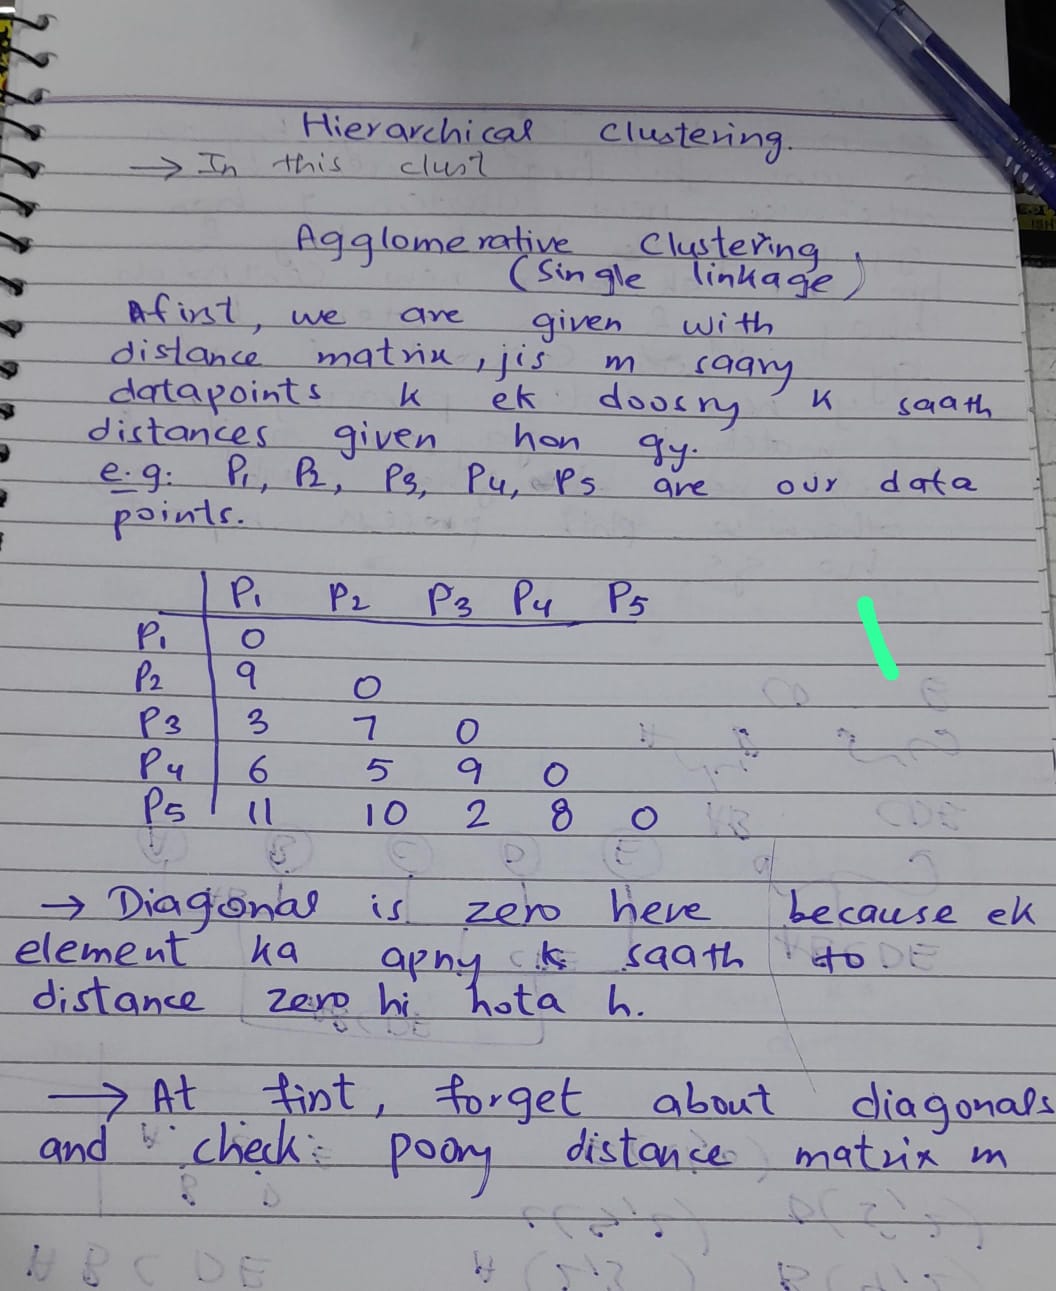 Hierarchical Clustering.
→ In this clust
Agglomerative Clustering
(Single linkage)
Afirst, we are given with
distance matrix, jis m saary
datapoints k ek doosry k saath
distances given hon gy.
e.g: P1, P2, P3, P4, P5 are our data
points.
P1 P2 P3 P4 P5
P1 0
P2 9 0
P3 3 7 0
P4 6 5 9 0
P5 11 10 2 8 0
→ Diagonal is zero here because ek
element ka apny k saath to
distance zero hi hota h.
→ At first, forget about diagonals
and check poory distance matrix m